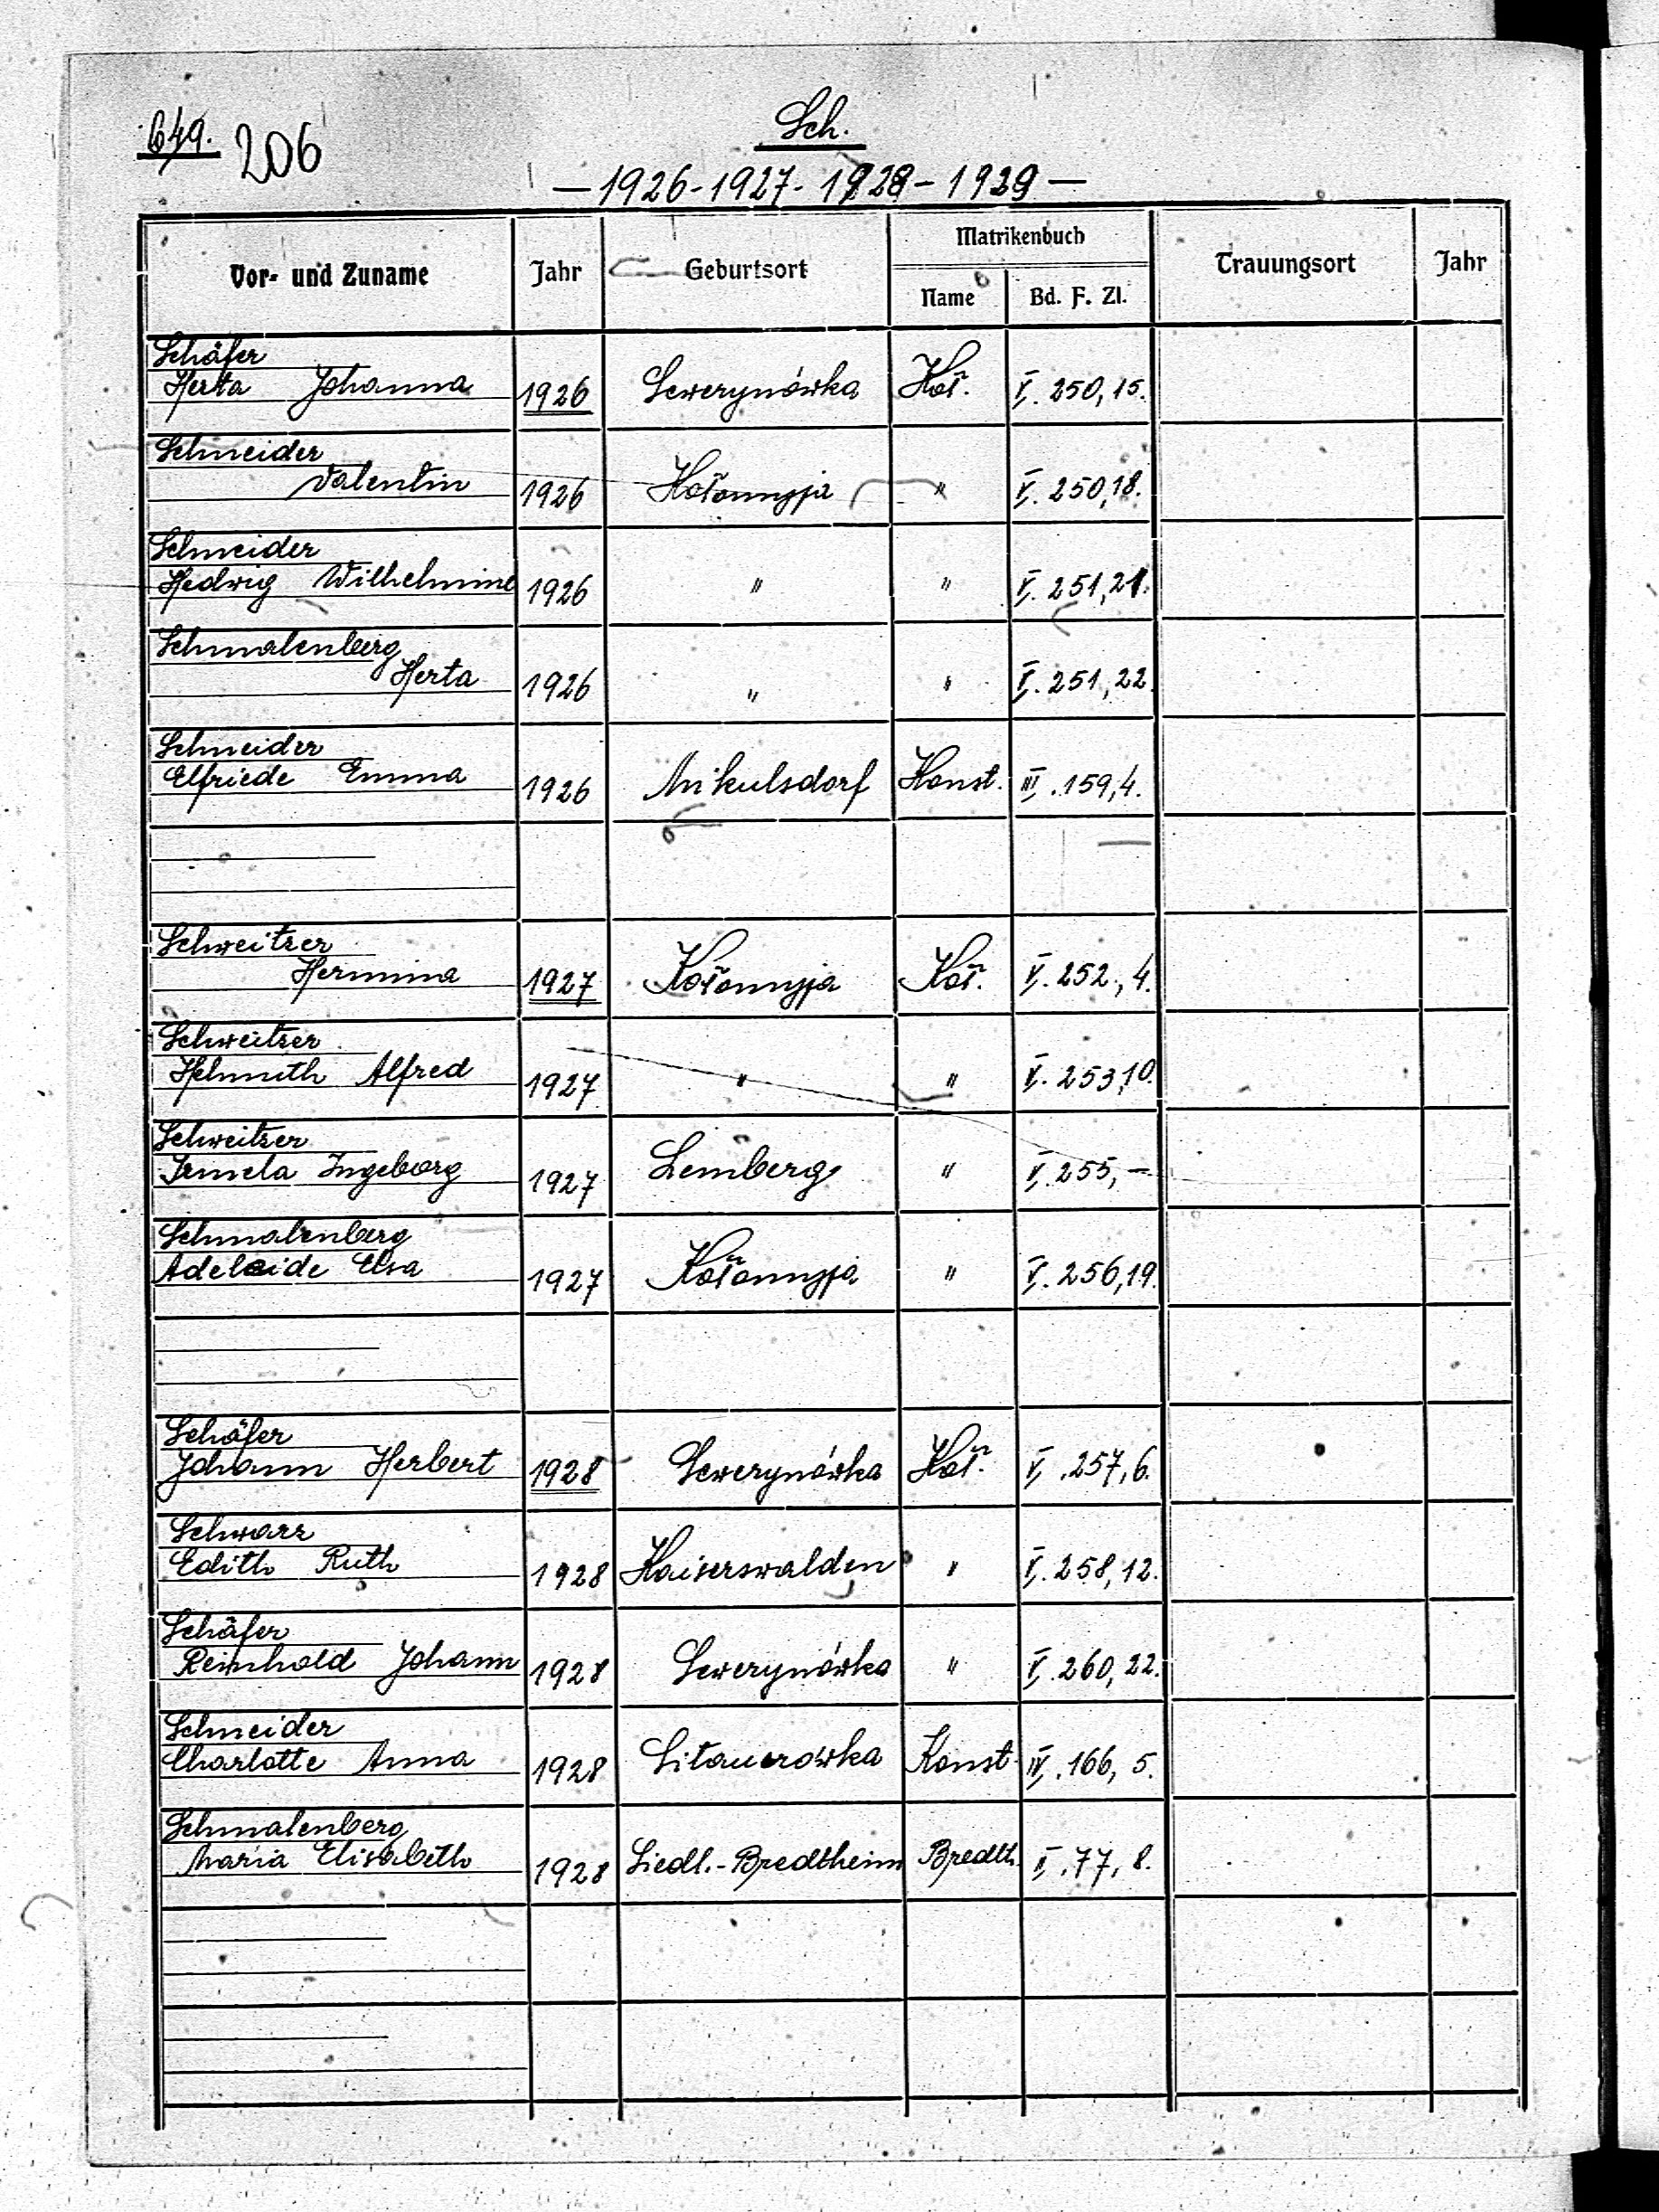 649. 206
Sch.
— 1926 - 1927 - 1928 - 1929 —
Vor- und Zuname Jahr Geburtsort Matrikenbuch Trauungsort Jahr
Name Bd. F. Zl.
Schäfer
Herta Johanna 1926 Sewerynówka Koł. V. 250, 15.
Schneider
Valentin 1926 Kołomyja " V. 250, 18.
Schneider
Hedwig Wilhelmine 1926 " " V. 251, 21.
Schmalenberg
Herta 1926 " " V. 251, 22.
Schneider
Elfriede Emma 1926 Mikulsdorf Konst. III. 159, 4.
Schweitzer
Hermina 1927 Kołomyja Koł. V. 252, 4.
Schweitzer
Helmuth Alfred 1927 " " V. 253, 10.
Schweitzer
Irmela Ingeborg 1927 Lemberg " V. 255, —
Schmalenberg
Adelaide Elsa 1927 Kołomyja " V. 256, 19.
Schäfer
Johann Herbert 1928 Sewerynówka Koł. V. 257, 6.
Schwarz
Edith Ruth 1928 Kaiserswalden " V. 258, 12.
Schäfer
Reinhold Johann 1928 Sewerynówka " V. 260, 22.
Schneider
Charlotte Anna 1928 Sitauerówka Konst. 166, 5.
Schmalenberg
Maria Elisabeth 1928 Siedl.-Bredtheim Bredth. II. 77, 8.